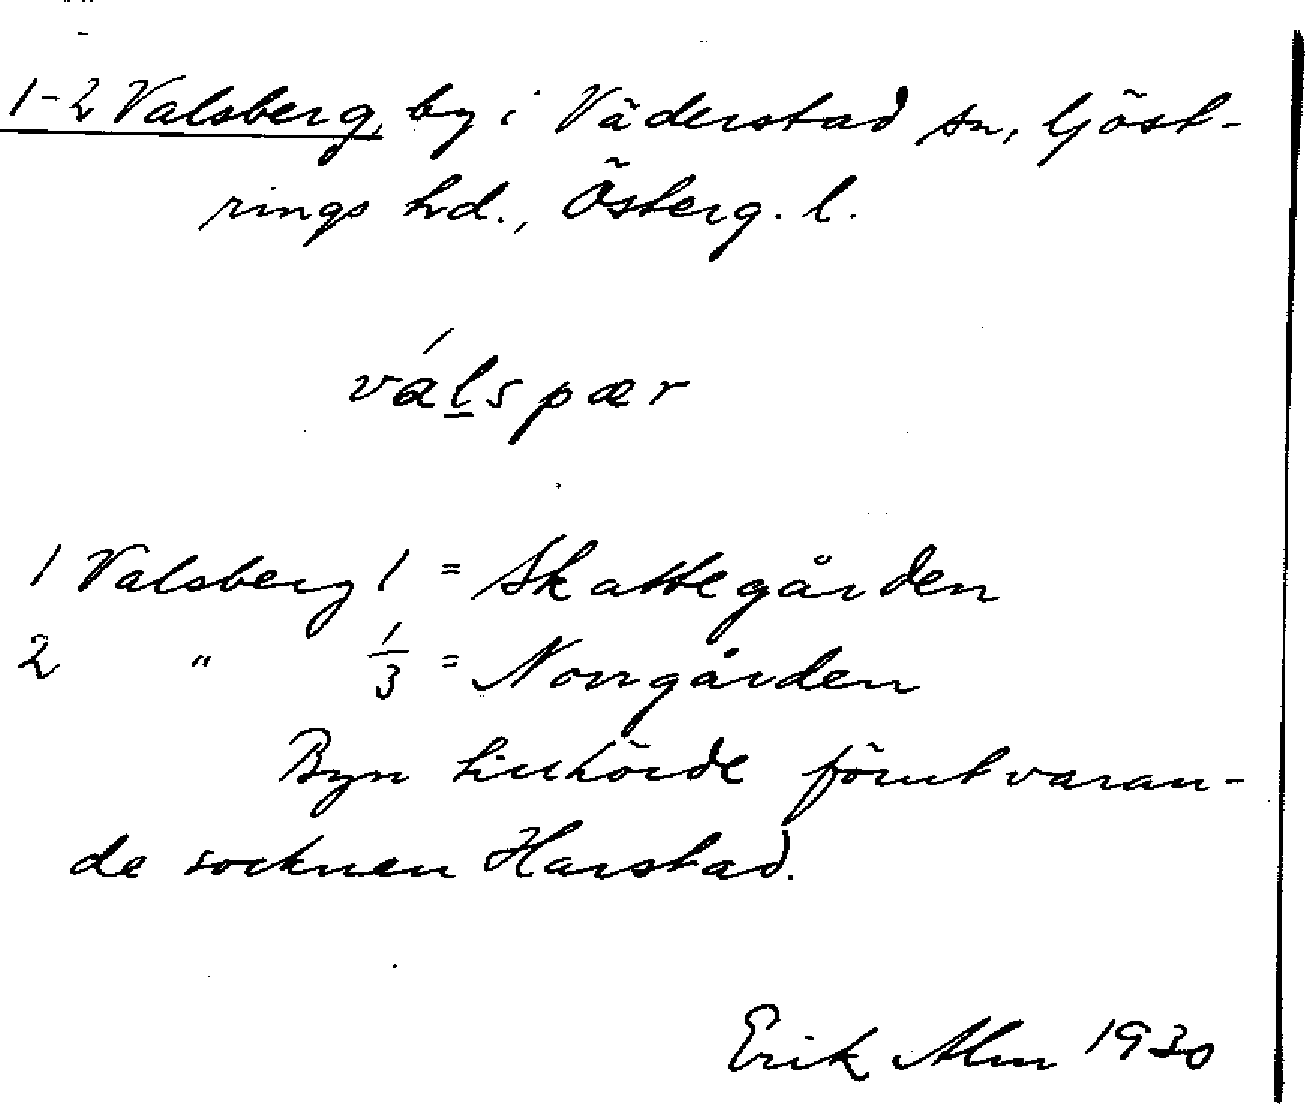 1-2 Valsberg, by i Väderstad sn, Göst-
rings hd., Österg. l.
válspær
1 Valsberg 1 = Skattegården
2 " 1/3 = Norrgården
Byn tillhörde förutvaran-
de socknen Harstad.
Erik Alm 1930